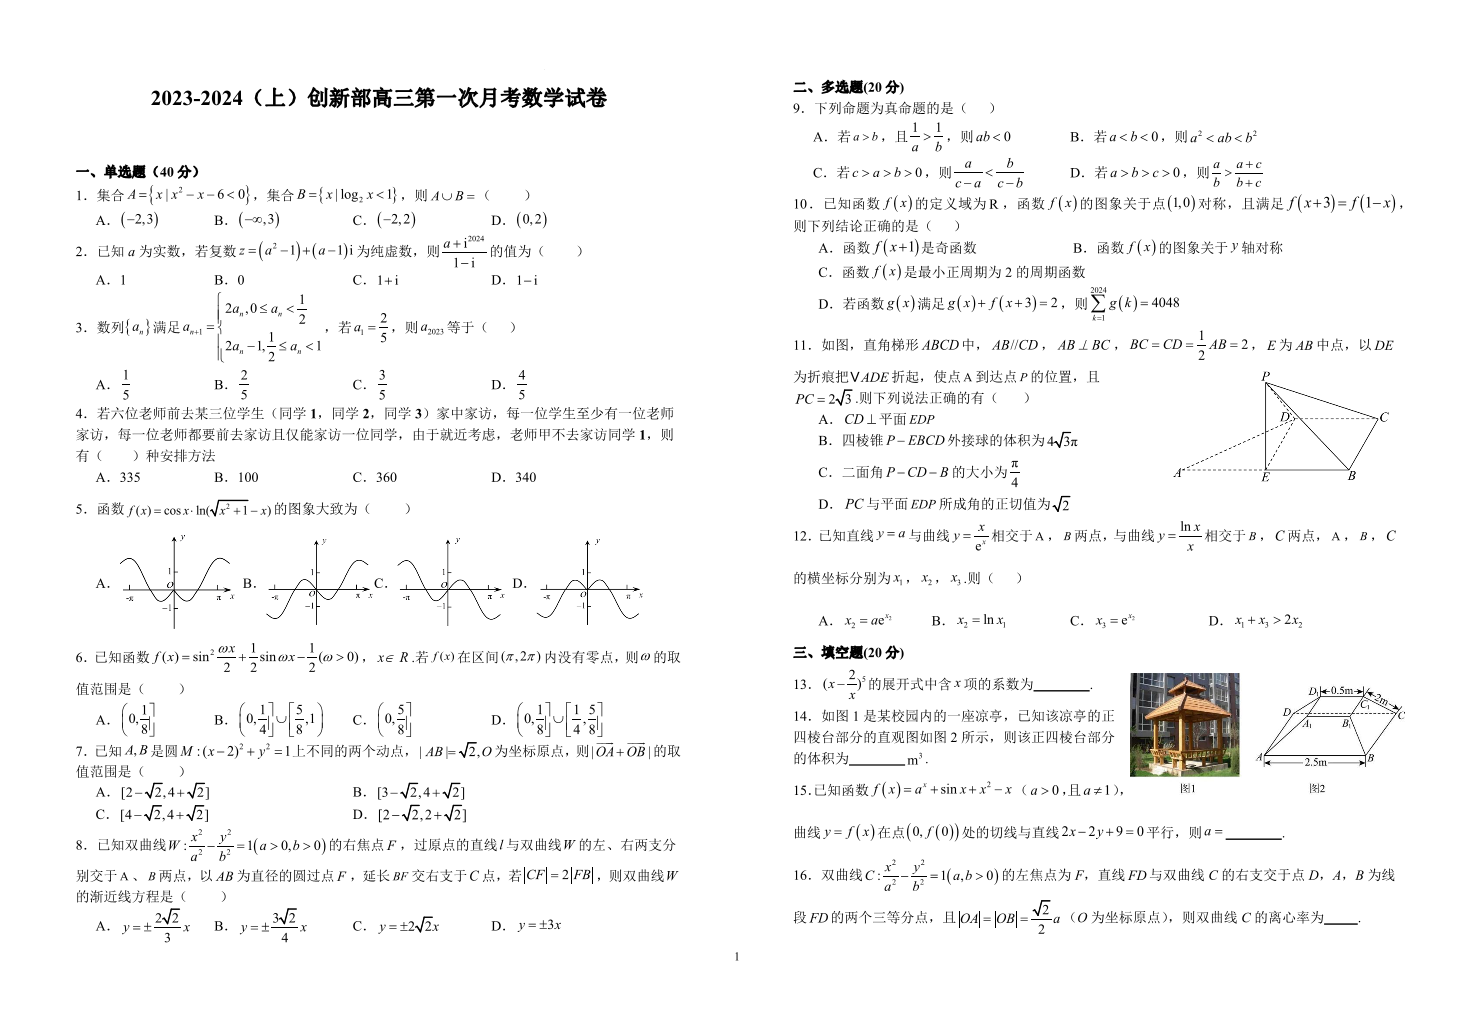 2023-2024（上）创新部高三第一次月考数学试卷
一、单选题（40 分）
1．集合 A={x | x² − x − 6 < 0}，集合 B={x | log₂ x < 1}，则 A∪B =（　　）
A．(−2,3)　B．(−∞,3)　C．(−2,2)　D．(0,2)
2．已知 a 为实数，若复数 z = (a² − 1) + (a − 1)i 为纯虚数，则 (a + i²⁰²⁴)/(1 − i) 的值为（　　）
A．1　B．0　C．1+i　D．1−i
3．数列{aₙ}满足 aₙ₊₁ = { 2aₙ, 0 ≤ aₙ < 1/2 ; 2aₙ − 1, 1/2 ≤ aₙ < 1 ，若 a₁ = 2/5，则 a₂₀₂₃ 等于（　　）
A．1/5　B．2/5　C．3/5　D．4/5
4．若六位老师前去某三位学生（同学 1，同学 2，同学 3）家中家访，每一位学生至少有一位老师
家访，每一位老师都要前去家访且仅能家访一位同学，由于就近考虑，老师甲不去家访同学 1，则
有（　　）种安排方法
A．335　B．100　C．360　D．340
5．函数 f(x) = cos x · ln(√(x² + 1) − x) 的图象大致为（　　）
A．　B．　C．　D．
y 1 O −1 -π π x
y 1 O −1 -π π x
y 1 O −1 -π π x
y 1 O −1 -π π x
6．已知函数 f(x) = sin² (ωx/2) + (1/2)sin ωx − 1/2 (ω > 0)，x ∈ R .若 f(x) 在区间 (π, 2π) 内没有零点，则 ω 的取
值范围是（　　）
A．(0, 1/8]　B．(0, 1/4]∪[5/8, 1)　C．(0, 5/8]　D．(0, 1/8]∪[1/4, 5/8]
7．已知 A,B 是圆 M : (x − 2)² + y² = 1 上不同的两个动点，| AB |= √2, O 为坐标原点，则 | OA + OB | 的取
值范围是（　　）
A．[2−√2,4+√2]　B．[3−√2,4+√2]
C．[4−√2,4+√2]　D．[2−√2,2+√2]
8．已知双曲线 W : x²/a² − y²/b² = 1(a > 0, b > 0) 的右焦点 F，过原点的直线 l 与双曲线 W 的左、右两支分
别交于 A 、 B 两点，以 AB 为直径的圆过点 F，延长 BF 交右支于 C 点，若 |CF| = 2|FB|，则双曲线 W
的渐近线方程是（　　）
A．y = ± (2√2/3) x　B．y = ± (3√2/4) x　C．y = ±2√2x　D．y = ±3x
二、多选题(20 分)
9．下列命题为真命题的是（　　）
A．若 a > b，且 1/a > 1/b，则 ab < 0　B．若 a < b < 0，则 a² < ab < b²
C．若 c > a > b > 0，则 a/(c−a) < b/(c−b)　D．若 a > b > c > 0，则 a/b > (a+c)/(b+c)
10．已知函数 f(x) 的定义域为 R ，函数 f(x) 的图象关于点 (1,0) 对称，且满足 f(x+3) = f(1−x)，
则下列结论正确的是（　　）
A．函数 f(x+1) 是奇函数　B．函数 f(x) 的图象关于 y 轴对称
C．函数 f(x) 是最小正周期为 2 的周期函数
D．若函数 g(x) 满足 g(x) + f(x+3) = 2，则 ∑ₖ₌₁²⁰²⁴ g(k) = 4048
11．如图，直角梯形 ABCD 中，AB//CD，AB ⊥ BC，BC = CD = 1/2 AB = 2，E 为 AB 中点，以 DE
为折痕把 V ADE 折起，使点 A 到达点 P 的位置，且
PC = 2√3 .则下列说法正确的有（　　）
A．CD ⊥ 平面 EDP
B．四棱锥 P − EBCD 外接球的体积为 4√3π
C．二面角 P − CD − B 的大小为 π/4
D．PC 与平面 EDP 所成角的正切值为 √2
P D C A E B
12．已知直线 y = a 与曲线 y = x/eˣ 相交于 A ，B 两点，与曲线 y = ln x/x 相交于 B ，C 两点，A ，B ，C
的横坐标分别为 x₁，x₂，x₃ .则（　　）
A．x₂ = ae^(x₂)　B．x₂ = ln x₁　C．x₃ = e^(x₂)　D．x₁ + x₃ > 2x₂
三、填空题(20 分)
13．(x − 2/x)⁵ 的展开式中含 x 项的系数为________.
14．如图 1 是某校园内的一座凉亭，已知该凉亭的正
四棱台部分的直观图如图 2 所示，则该正四棱台部分
的体积为________m³．
D₁ 0.5m C₁ 2m D C A₁ B₁ A B 2.5m
图1　图2
15．已知函数 f(x) = aˣ + sin x + x² − x （ a > 0 ,且 a ≠ 1），
曲线 y = f(x) 在点 (0, f(0)) 处的切线与直线 2x − 2y + 9 = 0 平行，则 a = ________.
16．双曲线 C : x²/a² − y²/b² = 1(a, b > 0) 的左焦点为 F，直线 FD 与双曲线 C 的右支交于点 D，A，B 为线
段 FD 的两个三等分点，且 |OA| = |OB| = (√2/2) a （O 为坐标原点），则双曲线 C 的离心率为_____.
1